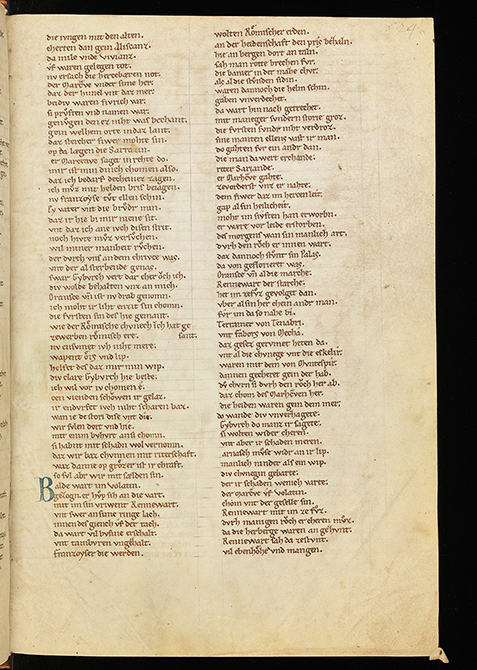 die ivngen mit den alten.
cherten dan gein Alischanz.
da mile vnde vivianz.
vf waren gelegen tot.
nv ersach die hereberen not.
der Marcgrave vnder sime her.
daz der himel vnt daz mer.
beidiv waren fivrich var.
si pruften vnd namen war.
genvgen den ez niht was bechant.
gein welhem orte indaz lant.
daz sterber fiwer mohte sin.
op da laegen die Sarrazin.
er Marcgrave saget in rehte do.
mir ist min dinch chomen also.
daz ich bedarf decheines zagen.
ich mvz mit helden pris beiagen.
nv franzoyse tvt ellen schin.
ly vater vnt die brvdr min.
daz ir hie bi mir niene sit.
vnt daz ich ane ivch disen strit.
noch hivte mvz versvchen.
wil miner manheit rvchen.
der dvrch vns an dem chrivce was.
vnt der al sterbende genas.
swar Gybvrch vert dar cher och ich.
div wolde behalten vns an mich.
Oransce vn ist nv drab genomn.
ich moht ir liht enzit sin chomn.
die fvrsten sin des hie gemant.
wie der Romische chvnech ich hat ge
zewerben romisch ere. sant.
nv enswinget ivh niht mere.
wapent ors vnd lip.
helfet des daz mir min wip.
div clare Gybvrch hie beste.
ich wil vor iv chomen e.
den vienden schowen ir gelaz.
ir endvrfet ivch niht scharen baz.
wan ie de storie dise vnt die.
wir svlen dort vnd hie.
mit einem bvhvrt ansi chomn.
si habent mit schadn wol vernomn.
daz wir baz chvnnen mit ritterschaft.
waz danne op grozer si ir chraft.
so svl abr wir mit saelden sin.
Balde wart im volatin.
gezogn. er hvp sih an die vart.
mit im sin vrivent Rennewart.
vnt swer ansime ringe lach.
innen des gieneh vf der tach.
da wart vil bvsine erschalt.
vnt tambvren vngestalt.
franzoyser die werden.
wolten Romischer erden.
an der heidenschaft den pris behaln.
hie an bergen dort an taln.
sah man rotte brechen fvr.
die banier in der mahe chvr.
als al die stvden sidin.
waren dannoch die helm schin.
gaben vnverdechet.
da wart hin nach getrechet.
mit maneger svndern storie groz.
die fvrsten svndr niht verdroz.
sine manten ellens vast ir man.
do gahten fvr ein andr dan.
die man da wert erchande.
reter Sarjande.
er Marcgrave gahte.
zevorderst vnz er nahte.
dem fiwer daz im herzen leit.
gap al sin heilicheit.
moht im siufzen han erworbn.
er ware vor leide erstorben.
des morgens wan sin manlich art.
dvrh den roch er innen wart.
daz dannoch stvnt sin palas.
da von gesflorieret was.
Oransce vn al die marche.
Rennewart der starche.
het im zefvz gevolget dan.
vber al sin her chein andr man.
fvr im da so nahe bi.
Terramer von Tenabri.
vnt fabors von Mecha.
daz gesez gervmet heten da.
vnt al die chvnege vnt die eskelir.
waren mit dem von Mvntespir.
dannen gecheret gein der hab.
dv chvrn si dvrh den roch her ab.
daz chom des Margraven her.
die heiden waren gein dem mer.
do wande div vnverzagete.
Gybvrch do manz ir sagete.
si wolten wider cheren.
vnt aber ir schaden meren.
arnasch mvse wider an ir lip.
manlich minder als ein wip.
div chvnegin gebarte.
der ir schaden wenich varte.
der marcgrave vf volatin.
chom vnt der geselle sin.
Rennewart mit im ze fvz.
dvrh manigen roch er cheren mvz.
da die herberge waren an gehvrt.
Rennewart sah da zestvnt.
vil ebenhohe vnd mangen.